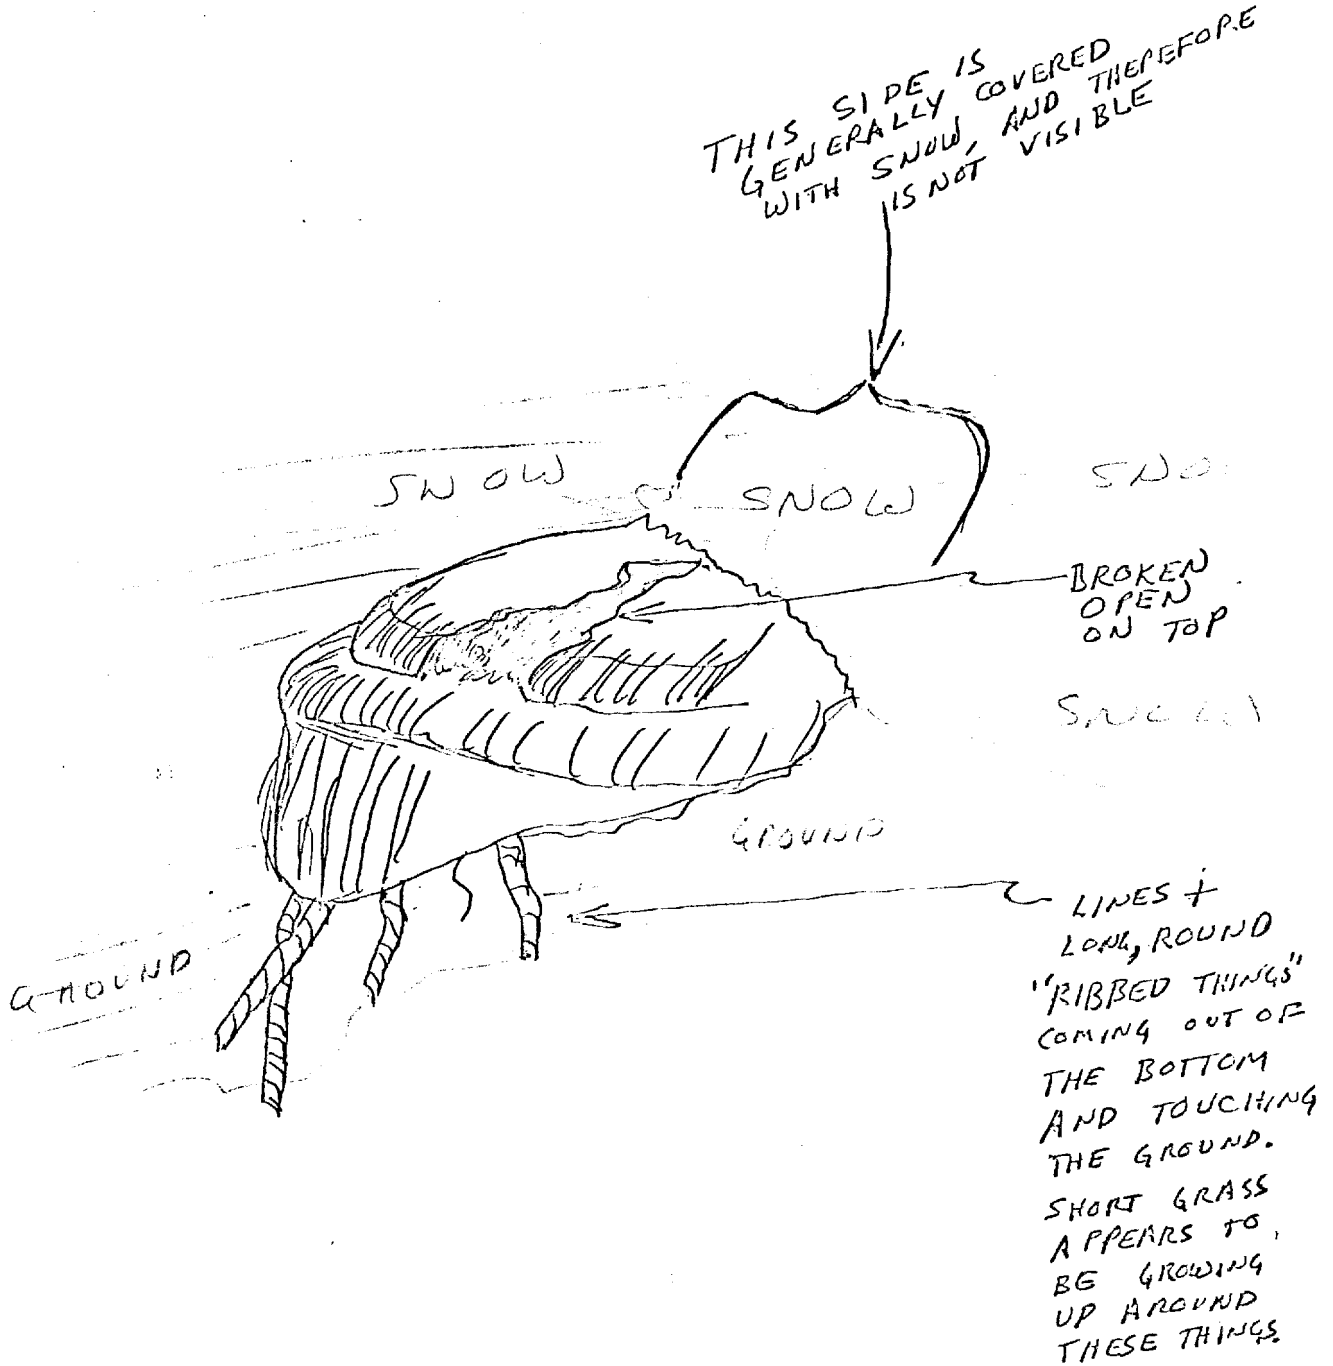 THIS SIDE IS
GENERALLY COVERED
WITH SNOW, AND THEREFORE
IS NOT VISIBLE
SNOW
SNOW
SNO
BROKEN
OPEN
ON TOP
SNOW
GROUND
GROUND
LINES +
LONG, ROUND
"RIBBED THINGS"
COMING OUT OF
THE BOTTOM
AND TOUCHING
THE GROUND.
SHORT GRASS
APPEARS TO
BE GROWING
UP AROUND
THESE THINGS.